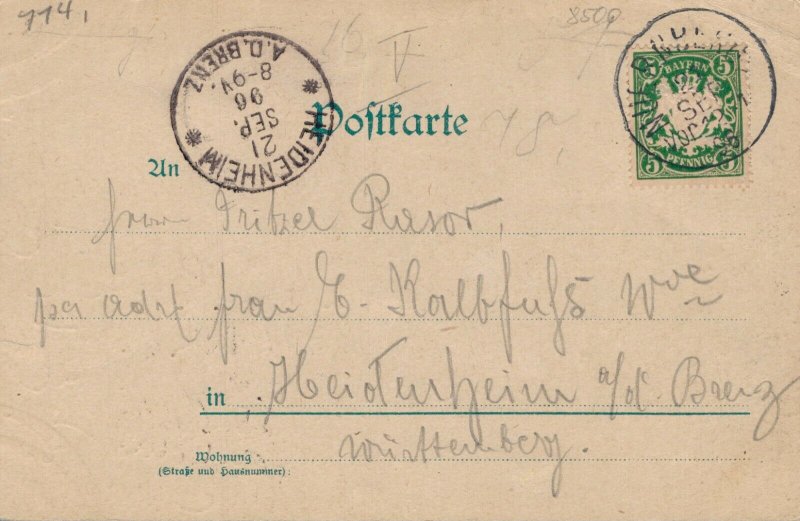 7141
8500
16
V
HEIDENHEIM
21
SEP.
96
8-9V.
A.D. BRENZ
BAYERN
5 5
SEP
5 PFENNIG 5
Postkarte
78,
An
Herrn Fritzel Rasor,
per adr frau C. Kalbfuhs Wwe
in Heidenheim a/d. Brenz
Württemberg.
Wohnung
(Straße und Hausnummer):